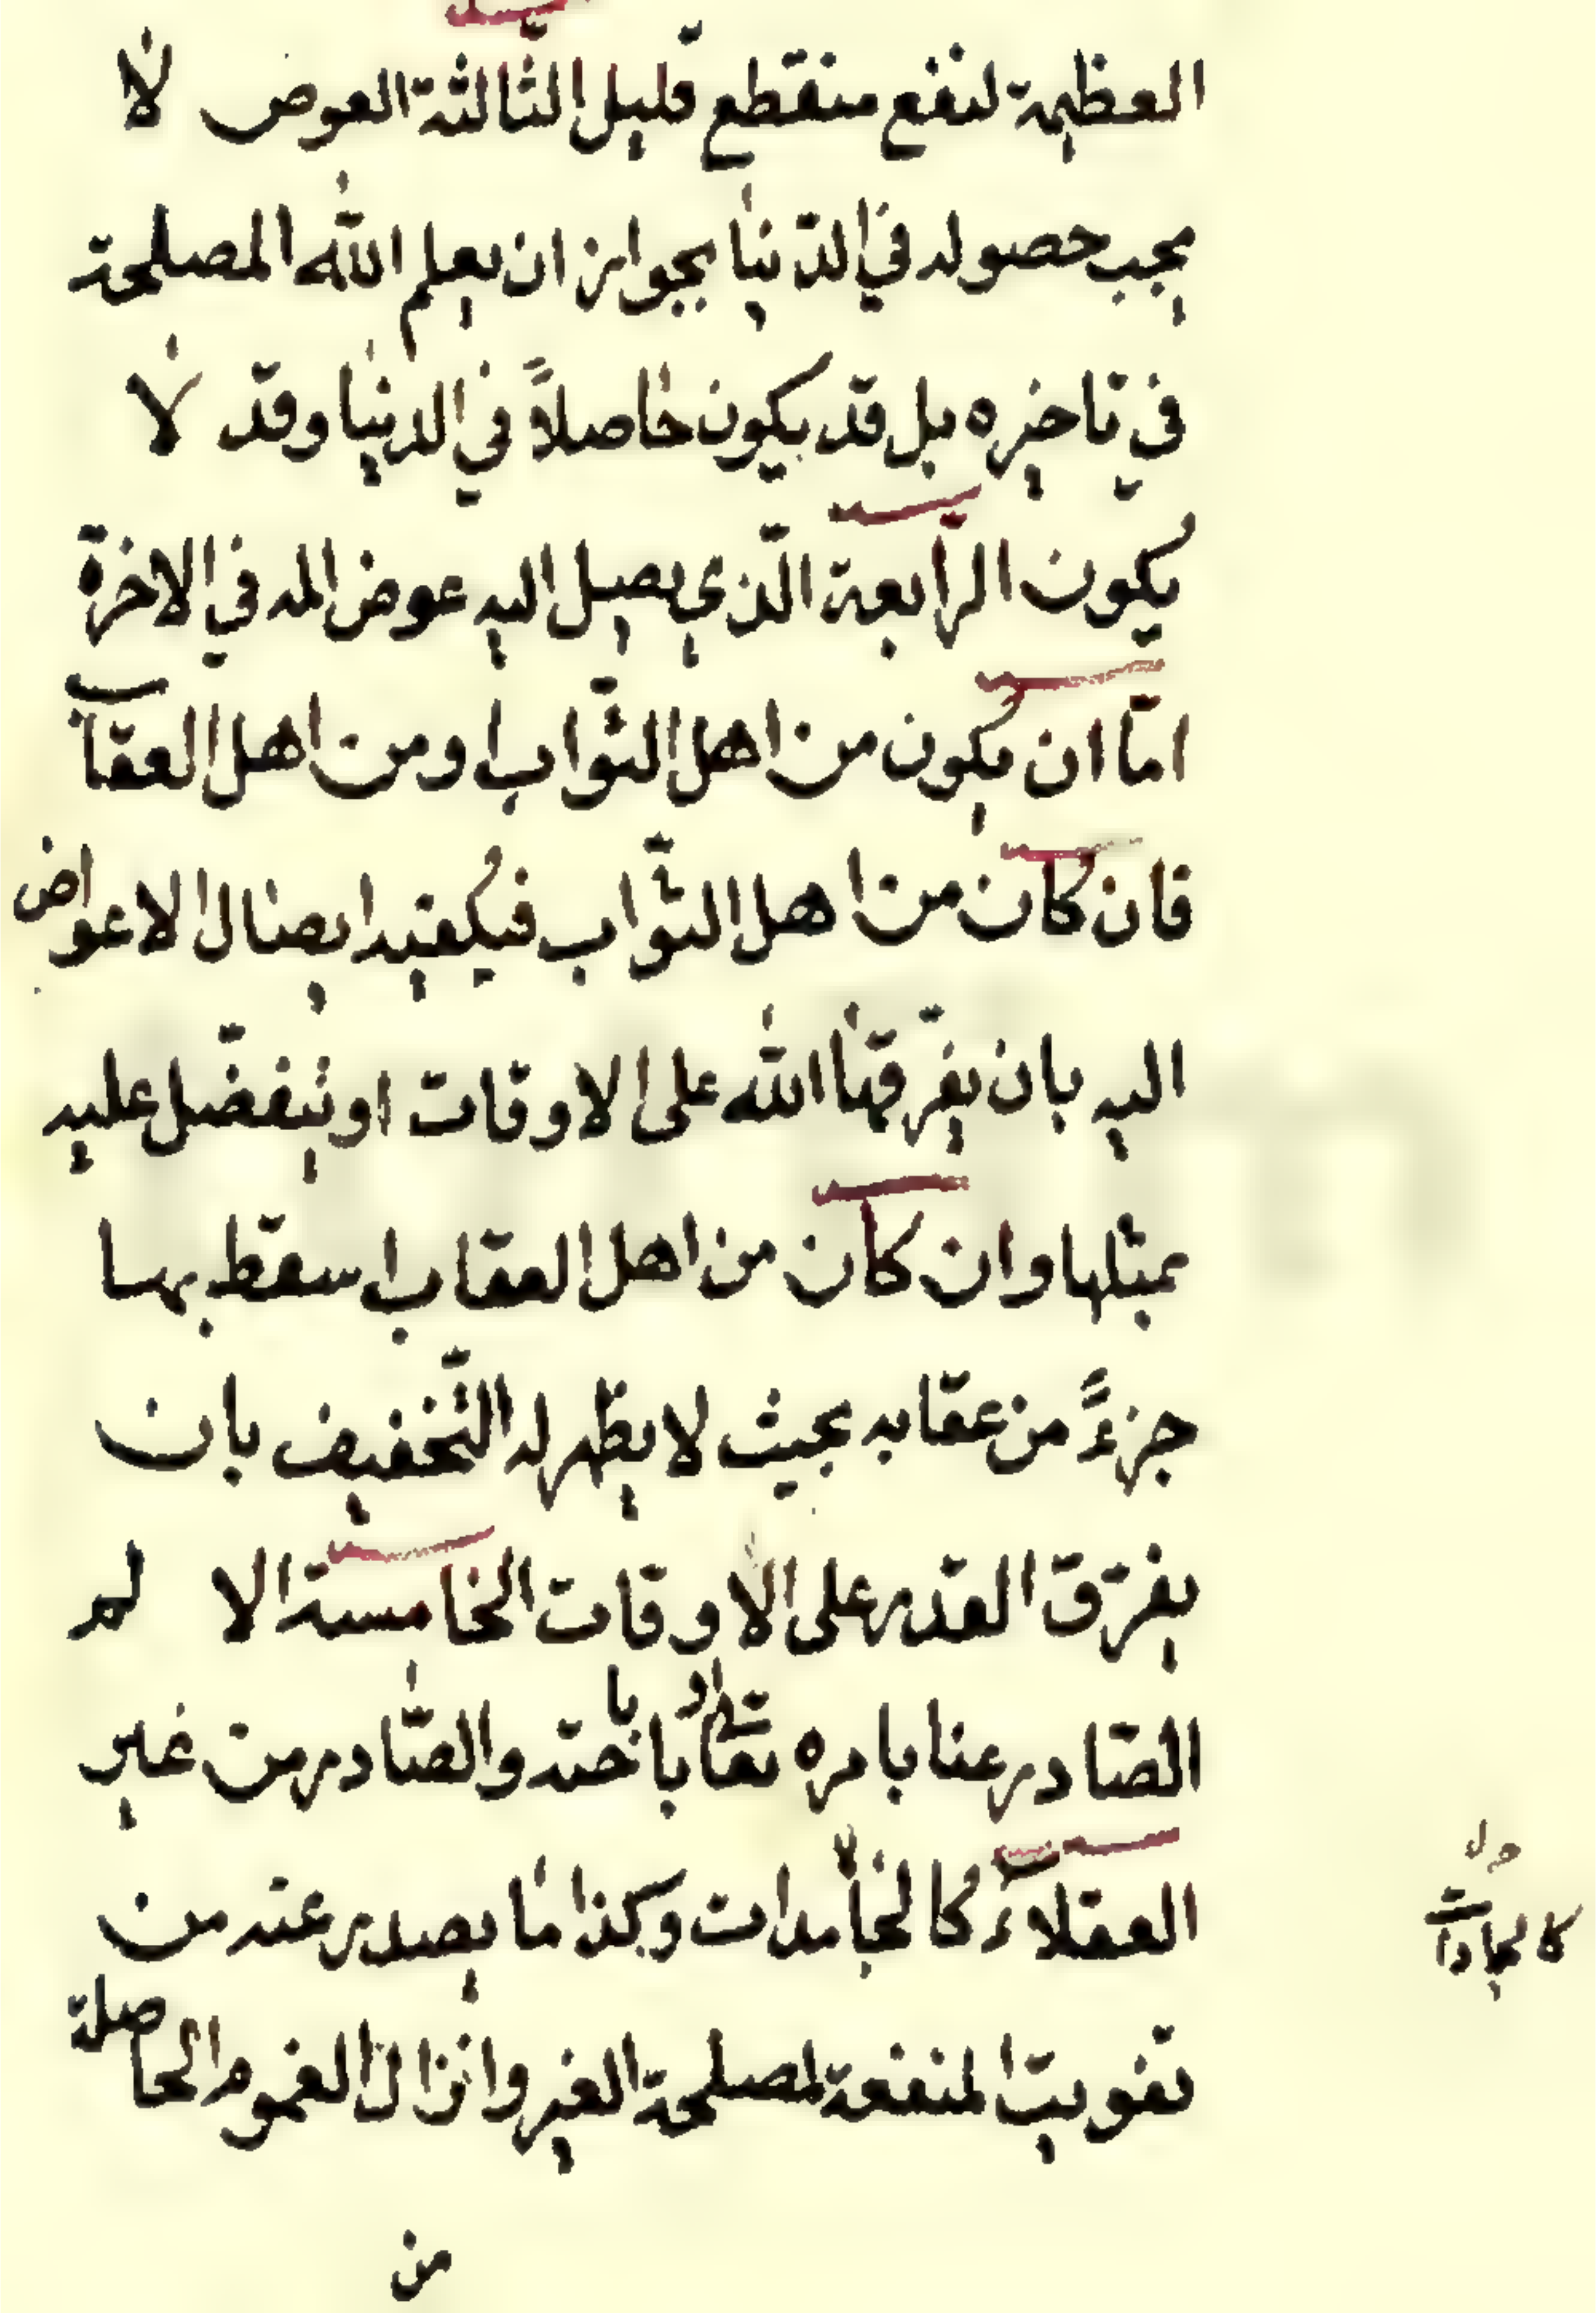 العظيمة لنفع منقطع قليل الثالثة العوض لا
يجب حصوله في الدنيا بجواز ان يعلم الله المصلحة
في تاخيره بل قد يكون حاصلاً في الدنيا وقد لا
يكون الرابعة الذي يصل اليه عوض المه في الاخرة
امّا ان يكون من اهل الثواب او من اهل العقاب
فان كان من اهل الثواب فيكفيه ايصال الاعواض
اليه بان يفرّقها الله على الاوقات او يتفضّل عليه
بمثلها وان كان من اهل العقاب اسقط بها
جزءً من عقابه بحيث لا يظهر له التخفيف بان
يفرّق القدر على الاوقات الخامسة الالم
الصادر عنا بامره تعالى او باباحته والصّادر من غير
العقلاء كالجامدات وكذا ما يصدر عنه من
كالجمادات
تفويت المنفعة لمصلحة الغير وانزال الغموم الحاصلة
من